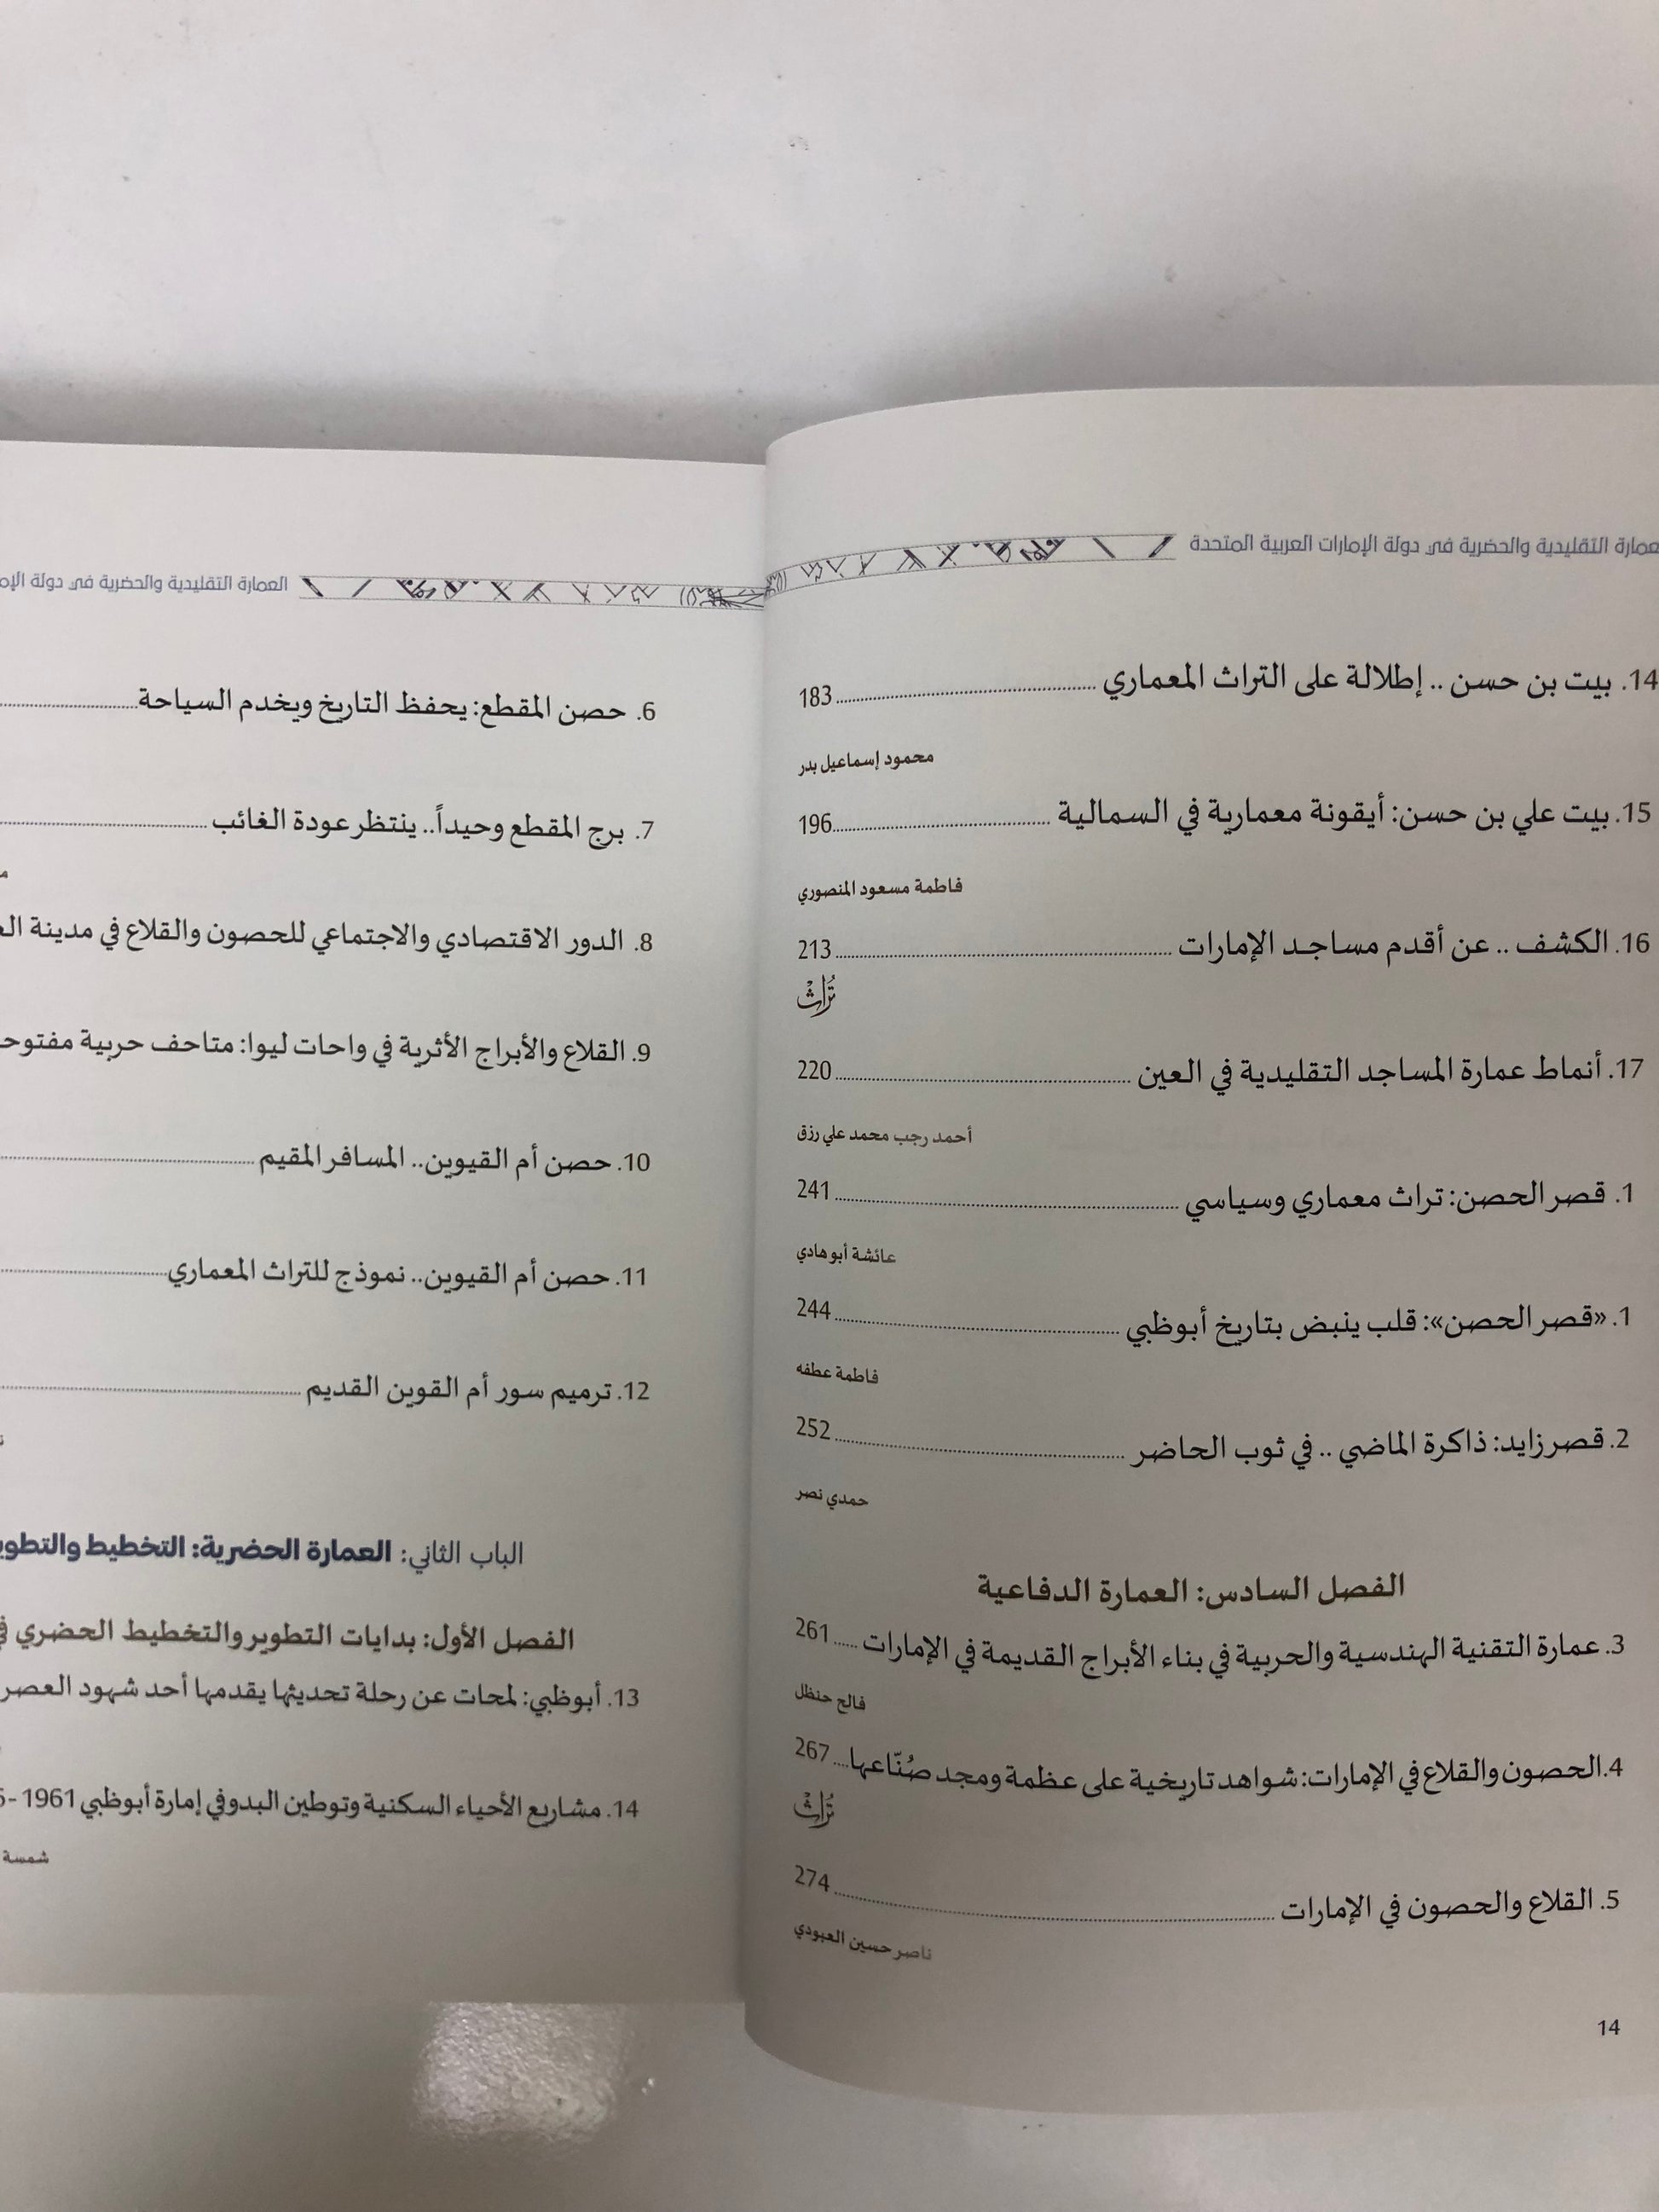 التقليدية والحضرية في دولة الإمارات العربية المتحدة
14. بيت بن حسن .. إطلالة على التراث المعماري ............ 183
محمود إسماعيل بدر
15. بيت علي بن حسن: أيقونة معمارية في السمالية ............ 196
فاطمة مسعود المنصوري
16. الكشف .. عن أقدم مساجد الإمارات ............ 213
تُراثْ
17. أنماط عمارة المساجد التقليدية في العين ............ 220
أحمد رجب محمد علي رزق
1. قصر الحصن: تراث معماري وسياسي ............ 241
عائشة أبوهادي
1. «قصر الحصن»: قلب ينبض بتاريخ أبوظبي ............ 244
فاطمة عطفه
2. قصر زايد: ذاكرة الماضي .. في ثوب الحاضر ............ 252
حمدي نصر
الفصل السادس: العمارة الدفاعية
3. عمارة التقنية الهندسية والحربية في بناء الأبراج القديمة في الإمارات ..... 261
فالح حنظل
4. الحصون والقلاع في الإمارات: شواهد تاريخية على عظمة ومجد صُنّاعها ... 267
تُراثْ
5. القلاع والحصون في الإمارات ............ 274
ناصر حسين العبودي
14
العمارة التقليدية والحضرية في دولة
6. حصن المقطع: يحفظ التاريخ ويخدم السياحة ............
7. برج المقطع وحيداً.. ينتظر عودة الغائب ............
8. الدور الاقتصادي والاجتماعي للحصون والقلاع في مدينة
9. القلاع والأبراج الأثرية في واحات ليوا: متاحف حربية
10. حصن أم القيوين.. المسافر المقيم ............
11. حصن أم القيوين.. نموذج للتراث المعماري ............
12. ترميم سور أم القوين القديم ............
الباب الثاني: العمارة الحضرية: التخطيط
الفصل الأول: بدايات التطوير والتخطيط الحضري
13. أبوظبي: لمحات عن رحلة تحديثها يقدمها أحد شهود العصر
14. مشاريع الأحياء السكنية وتوطين البدو في إمارة أبوظبي 1961 -
شمسة